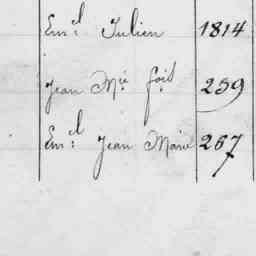 Em:el Julien 1814
Jean Mie fois 259
Em:el Jean Marie 267